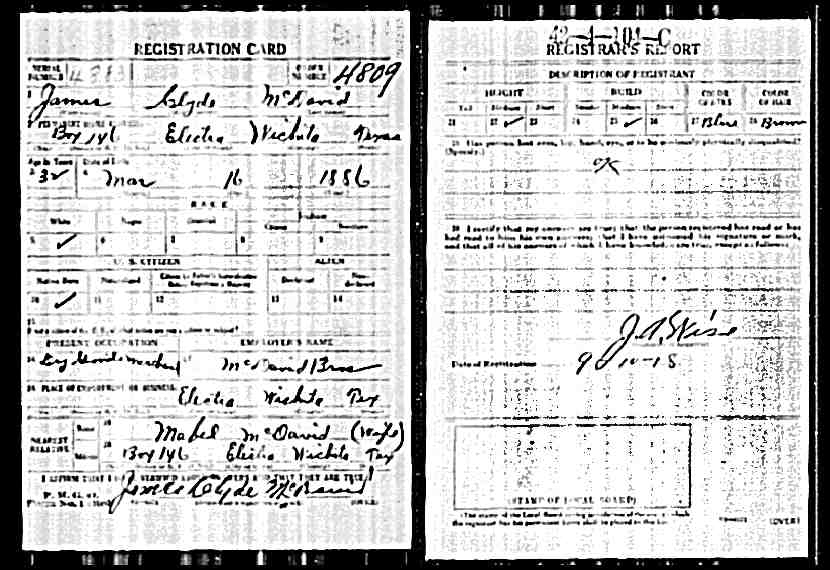 REGISTRATION CARD
SERIAL NUMBER 4383
ORDER NUMBER 4809
1 James Clyde McDavid
2 PERMANENT HOME ADDRESS
Box 146 Electra Wichita Texas
Age in Years Date of Birth
3 32 4 Mar 16 1886
RACE
White Negro Oriental Indian
Citizen
5 ✓ 6 7 8 9
U. S. CITIZEN ALIEN
Native Born Naturalized Declarant Non-declarant
10 ✓ 11 12 13 14
15
PRESENT OCCUPATION EMPLOYER'S NAME
16 Dry Goods Merchant 17 McDavid Bros
18 PLACE OF EMPLOYMENT OR BUSINESS
Electra Wichita Tex
NEAREST RELATIVE
Name 19 Mabel McDavid (Wife)
Address 20 Box 146 Electra Wichita Tex
I AFFIRM THAT I HAVE VERIFIED ABOVE ANSWERS AND THAT THEY ARE TRUE
P. M. G. O.
James Clyde McDavid
42-4-101-C
REGISTRAR'S REPORT
DESCRIPTION OF REGISTRANT
HEIGHT BUILD COLOR OF EYES COLOR OF HAIR
Tall Medium Short Slender Medium Stout
21 22 ✓ 23 24 25 ✓ 26 27 Blue 28 Brown
29 Has person lost arm, leg, hand, eye, or is he obviously physically disqualified?
(Specify.)
OK
30 I certify that my answers are true; that the person registered has read or has
had read to him his own answers; that I have witnessed his signature or mark,
and that all of his answers of which I have knowledge are true, except as follows:
J. A. Wise
Date of Registration 9-10-18
(STAMP OF LOCAL BOARD)
(The stamp of the Local Board having jurisdiction of the area in which
the registrant has his permanent home shall be placed in this box.)
(OVER)